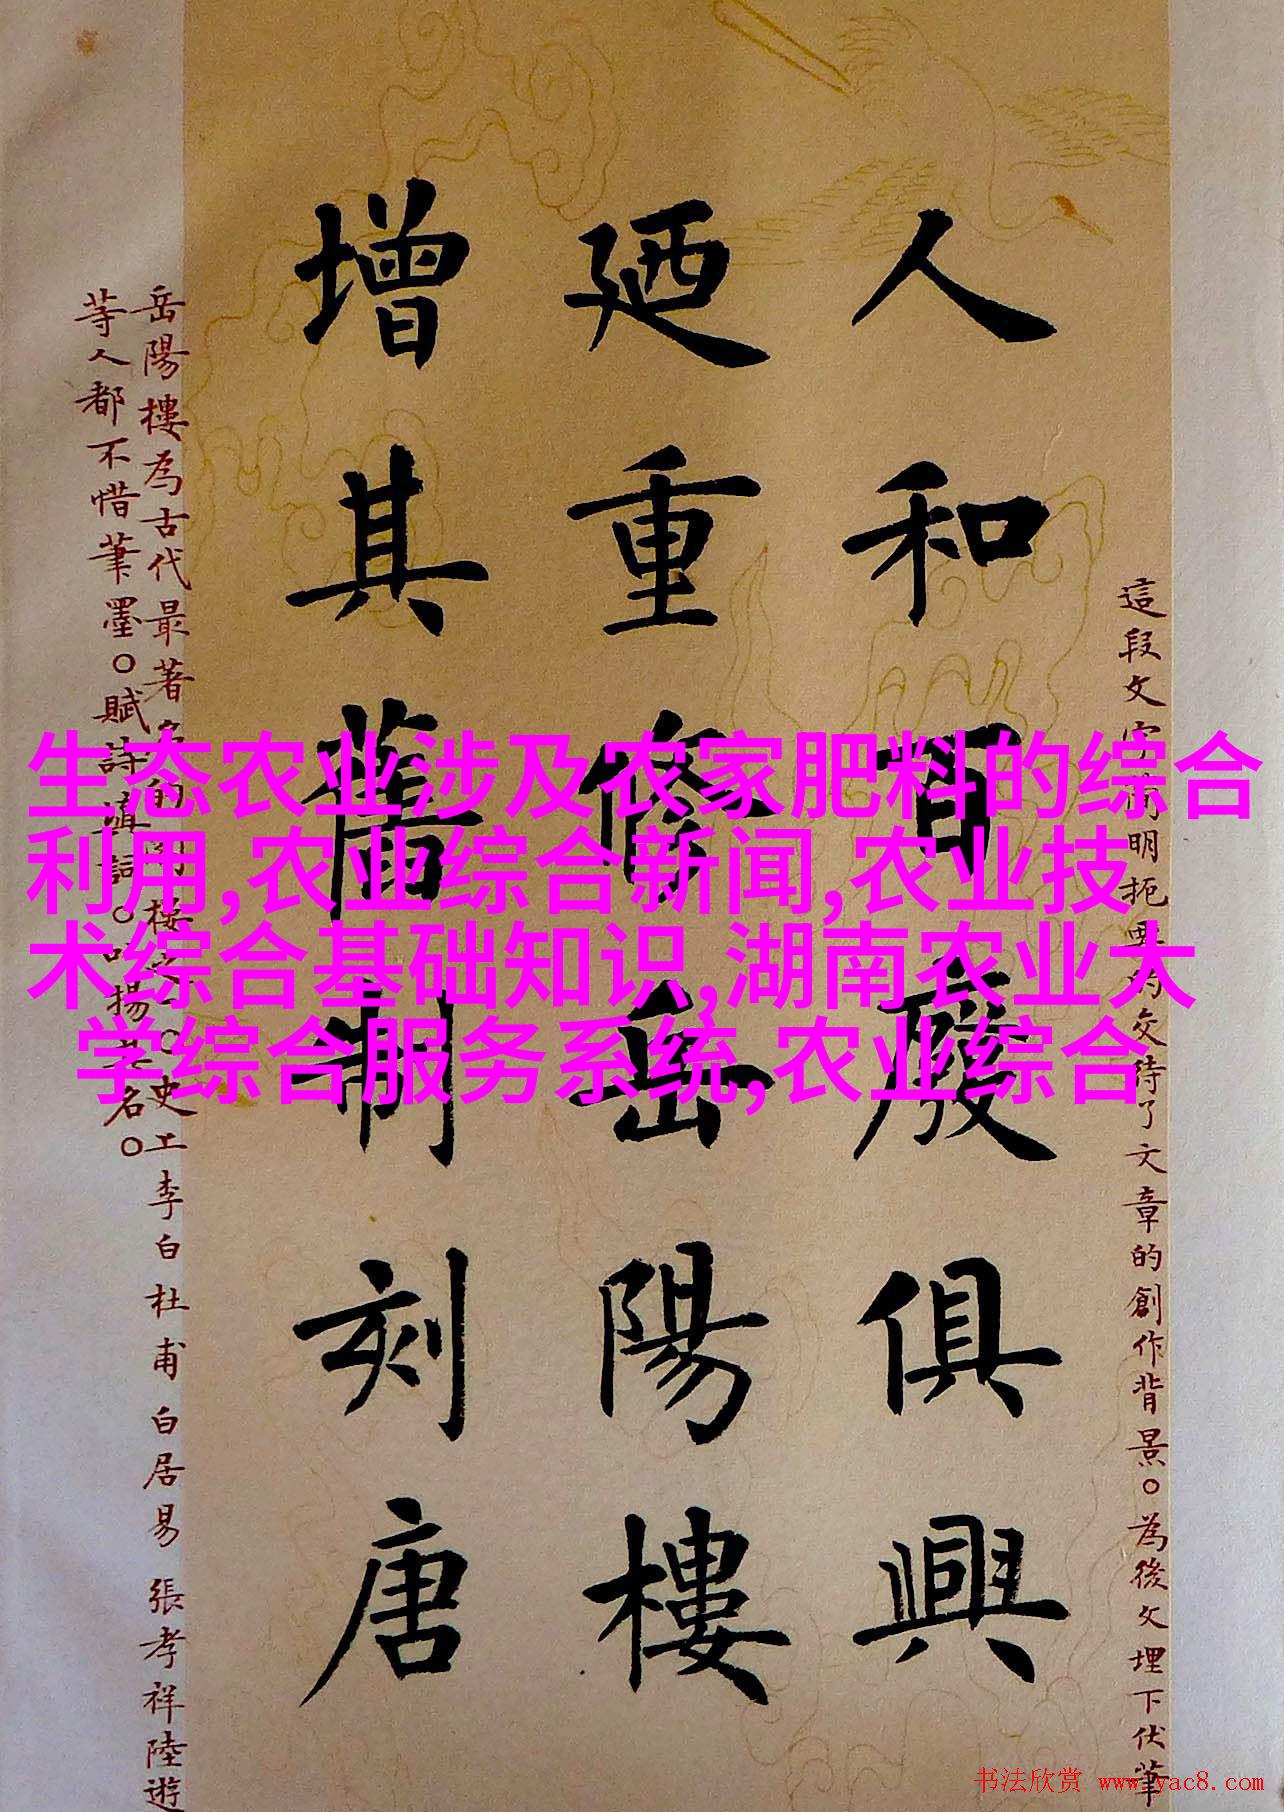 這段文字簡明扼要的交待了文章的創作背景。為後文埋下伏筆
人和百廢俱興
廼重修岳陽樓
增其舊制刻唐
岳陽樓為古代最著名的樓之一。史上李白杜甫白居易張孝祥陸遊
等人都不惜筆墨。賦詩填詞。揚其名。
生态农业涉及农家肥料的综合
利用,农业综合新闻,农业技
术综合基础知识,湖南农业大
学综合服务系统,农业综合
书法欣赏 www.yac8.com